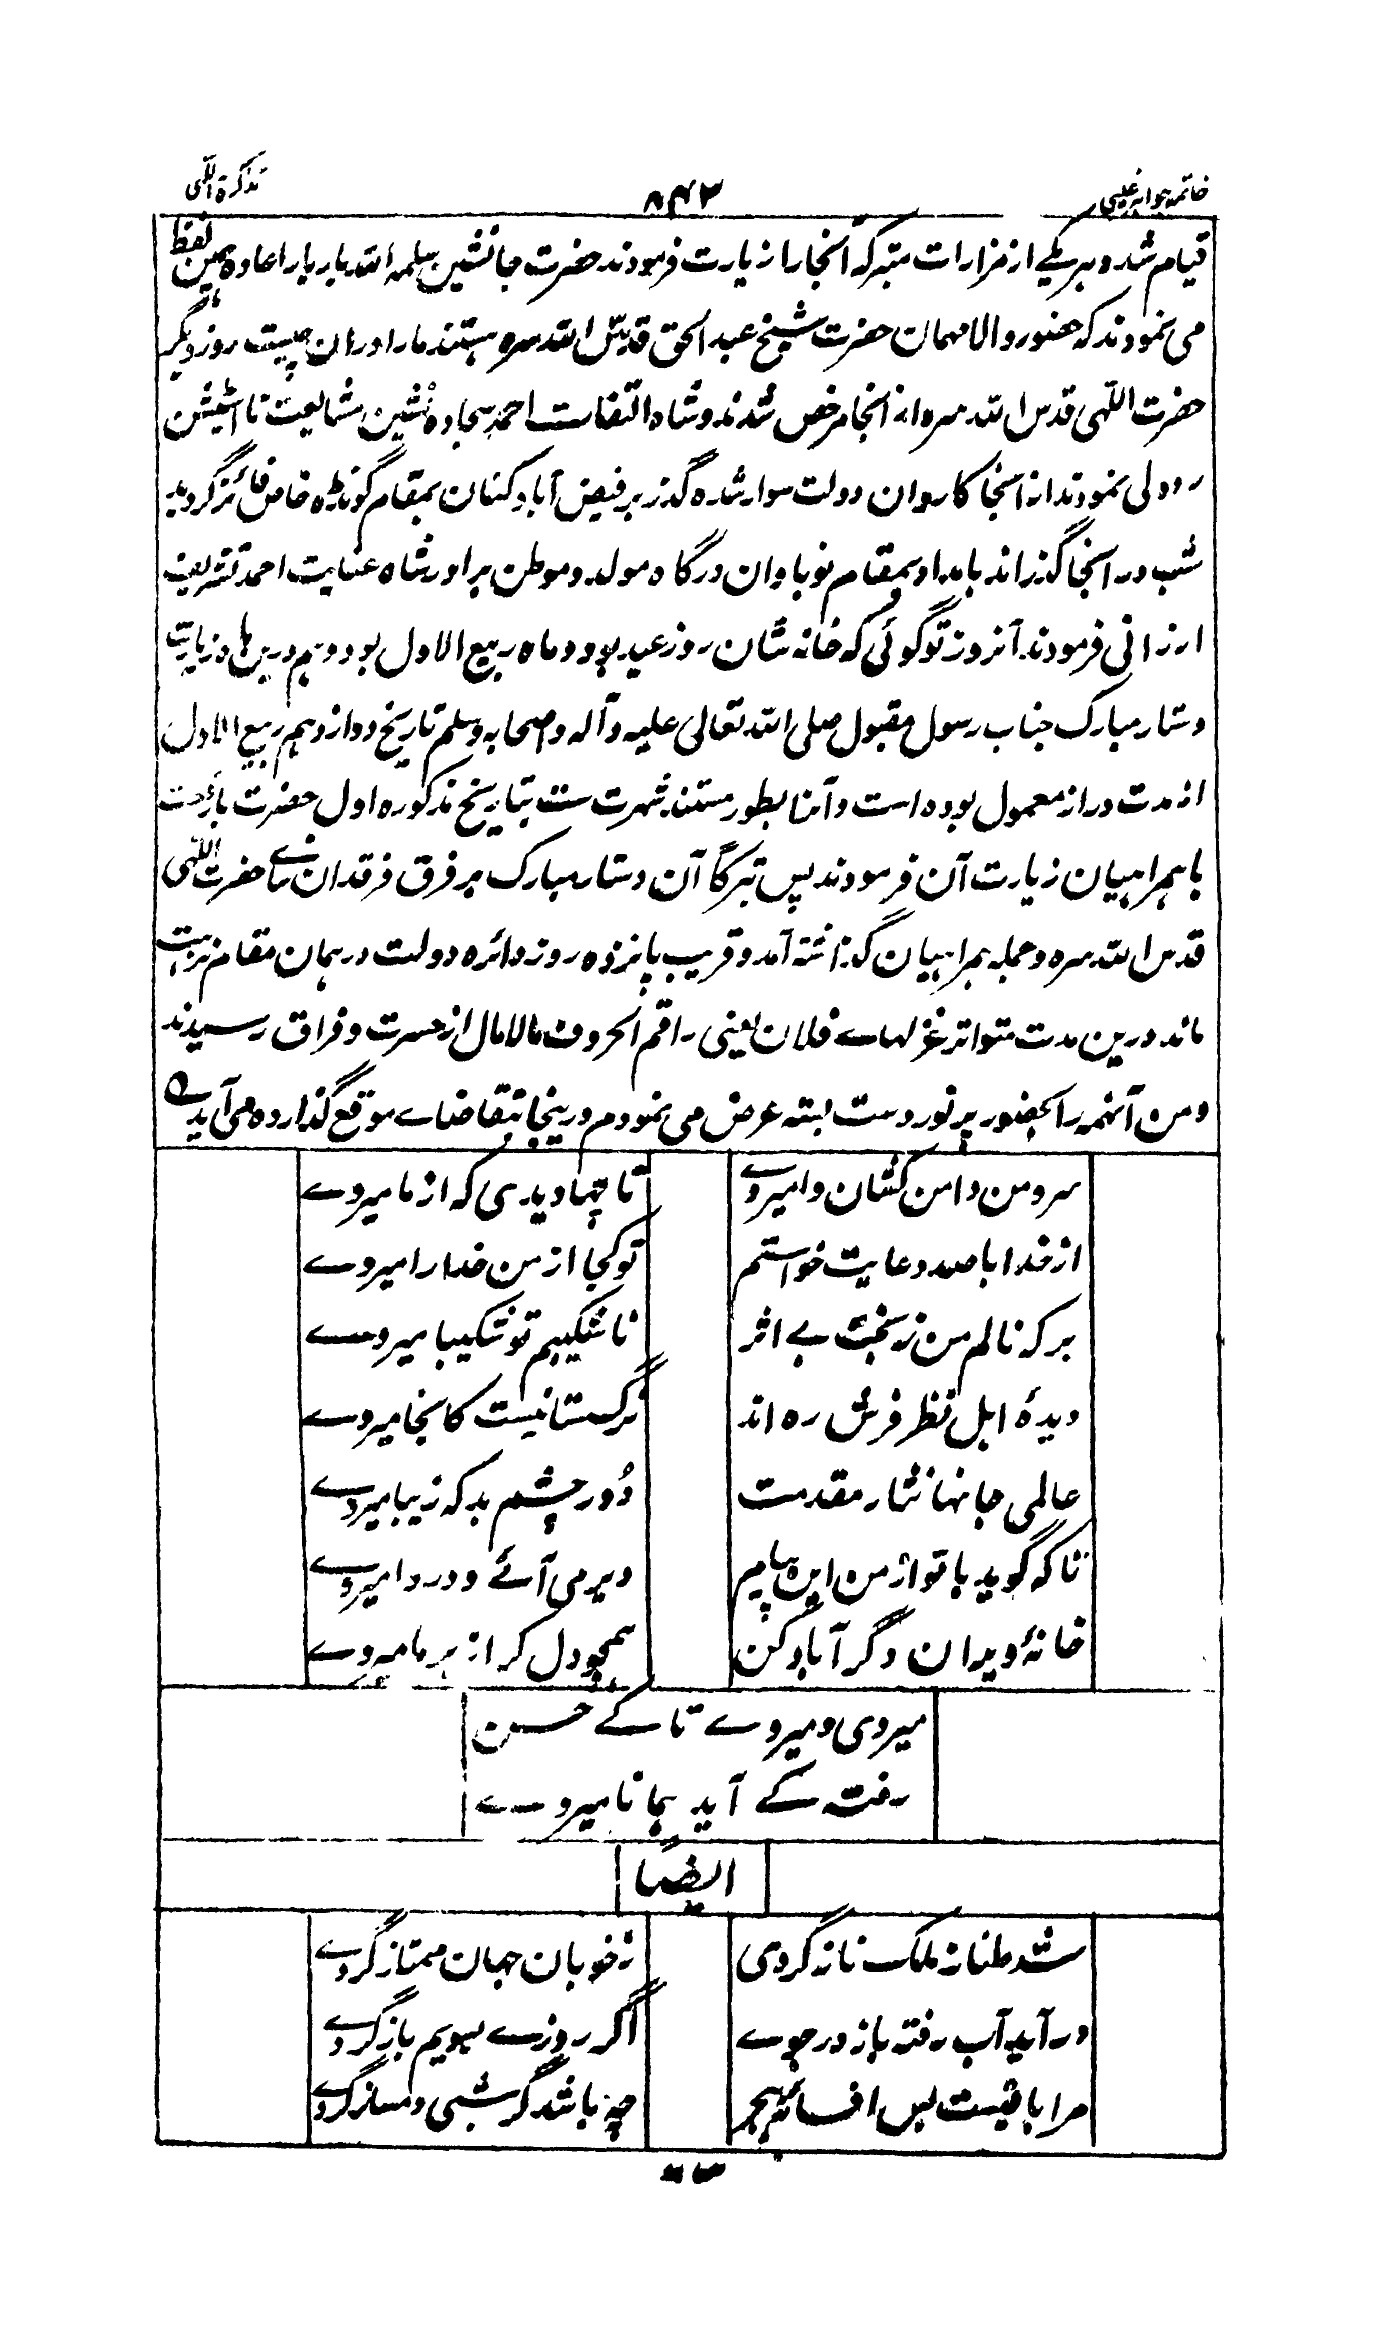 خاتمه جواهر غیبی
۸۴۲
تذکرة اللّٰهی
قیام شد و هر یکے از مزارات متبرکه آنجا را زیارت فرمودند حضرت جانشین سلمه الله بار بار اعاده همین لفظ
می نمودند که حضور والا مهمان حضرت شیخ عبد الحق قدس الله سره هستند ما را دران چیست روز دیگر
حضرت اللّٰهی قدس الله سره از آنجا مرخص شدند و شاه التفات احمد سجاده نشین مشایعت تا اسٹیشن
ردولی نمودند از آنجا کاروان دولت سوار شده گذر بر فیض آباد کنان بمقام گونڈه خاص فائز گردید
شب در آنجا گذراند بامداد بمقام نوباوان درگاه مولد و موطن برادر شاه عنایت احمد تشریف
ارزانی فرمودند آنروز تو گوئی که خانه شان روز عید بود و ماه ربیع الاول بود و هم درین ماه زیارت
دستار مبارک جناب رسول مقبول صلی الله تعالی علیه وآله واصحابه وسلم تاریخ دوازدهم ربیع الاول
از مدت دراز معمول بوده است و آنا بطور مستند شهرت ست بتاریخ مذکوره اول حضرت
با همراهیان زیارت آن فرمودند پس تبرکاً آن دستار مبارک بر فرق فرقدان سائے حضرت اللّٰهی
قدس الله سره و جمله همراهیان گذاشته آمد و قریب پانزده روز دائره دولت در همان مقام نزهت
ماند درین مدت متواتر غزلهاے فلان یعنی راقم الحروف مالامال از حسرت و فراق رسیدند
و من آنهمه را بحضور پر نور دست بسته عرض می نمودم درینجا بتقاضاے موقع گذارده می آید
سرو من دامن کشان وامیروے
تا چها دیدی که از ما میروے
از خدا با صد دعایت خواستم
تو کجا از من خدا را میروے
بر که نالم من ز بخت بے اثر
ناشکیبم تو شکیبا میروے
دیدهٔ اهل نظر فرش ره اند
نرگستانیست کانجا میروے
عالمی جانها نثار مقدمت
دُور چشم بد که زیبا میروے
تا که گوید با تو از من این پیام
دیر می آئے و دردا میروے
خانهٔ ویران دگر آباد کن
همچو دل کز از بر ما میروے
میروی و میروے تا کے حسن
رفته کے آید همانا میروے
ایضاً
شد طناز ملک ناز گردی
ز خوبان جهان ممتاز گردے
در آید آب رفته باز در جوے
اگر روزے بسویم باز گردے
مرا باقیست بس افسانهٔ هجر
چه باشد گر شبی دمساز گردے